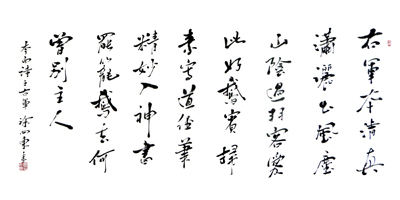 右軍本清真
瀟灑出風塵
山陰過羽客愛
此好鵝賓掃
素寫道經筆
精妙入神書
罷籠鵝去何
曾別主人
李白詩王右軍